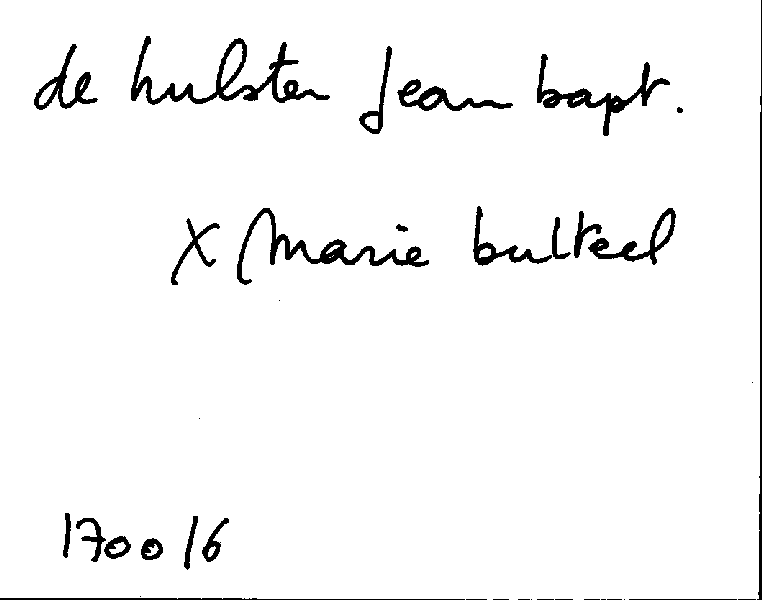 de hulster Jean bapt.
X Marie bulteel
1700 16